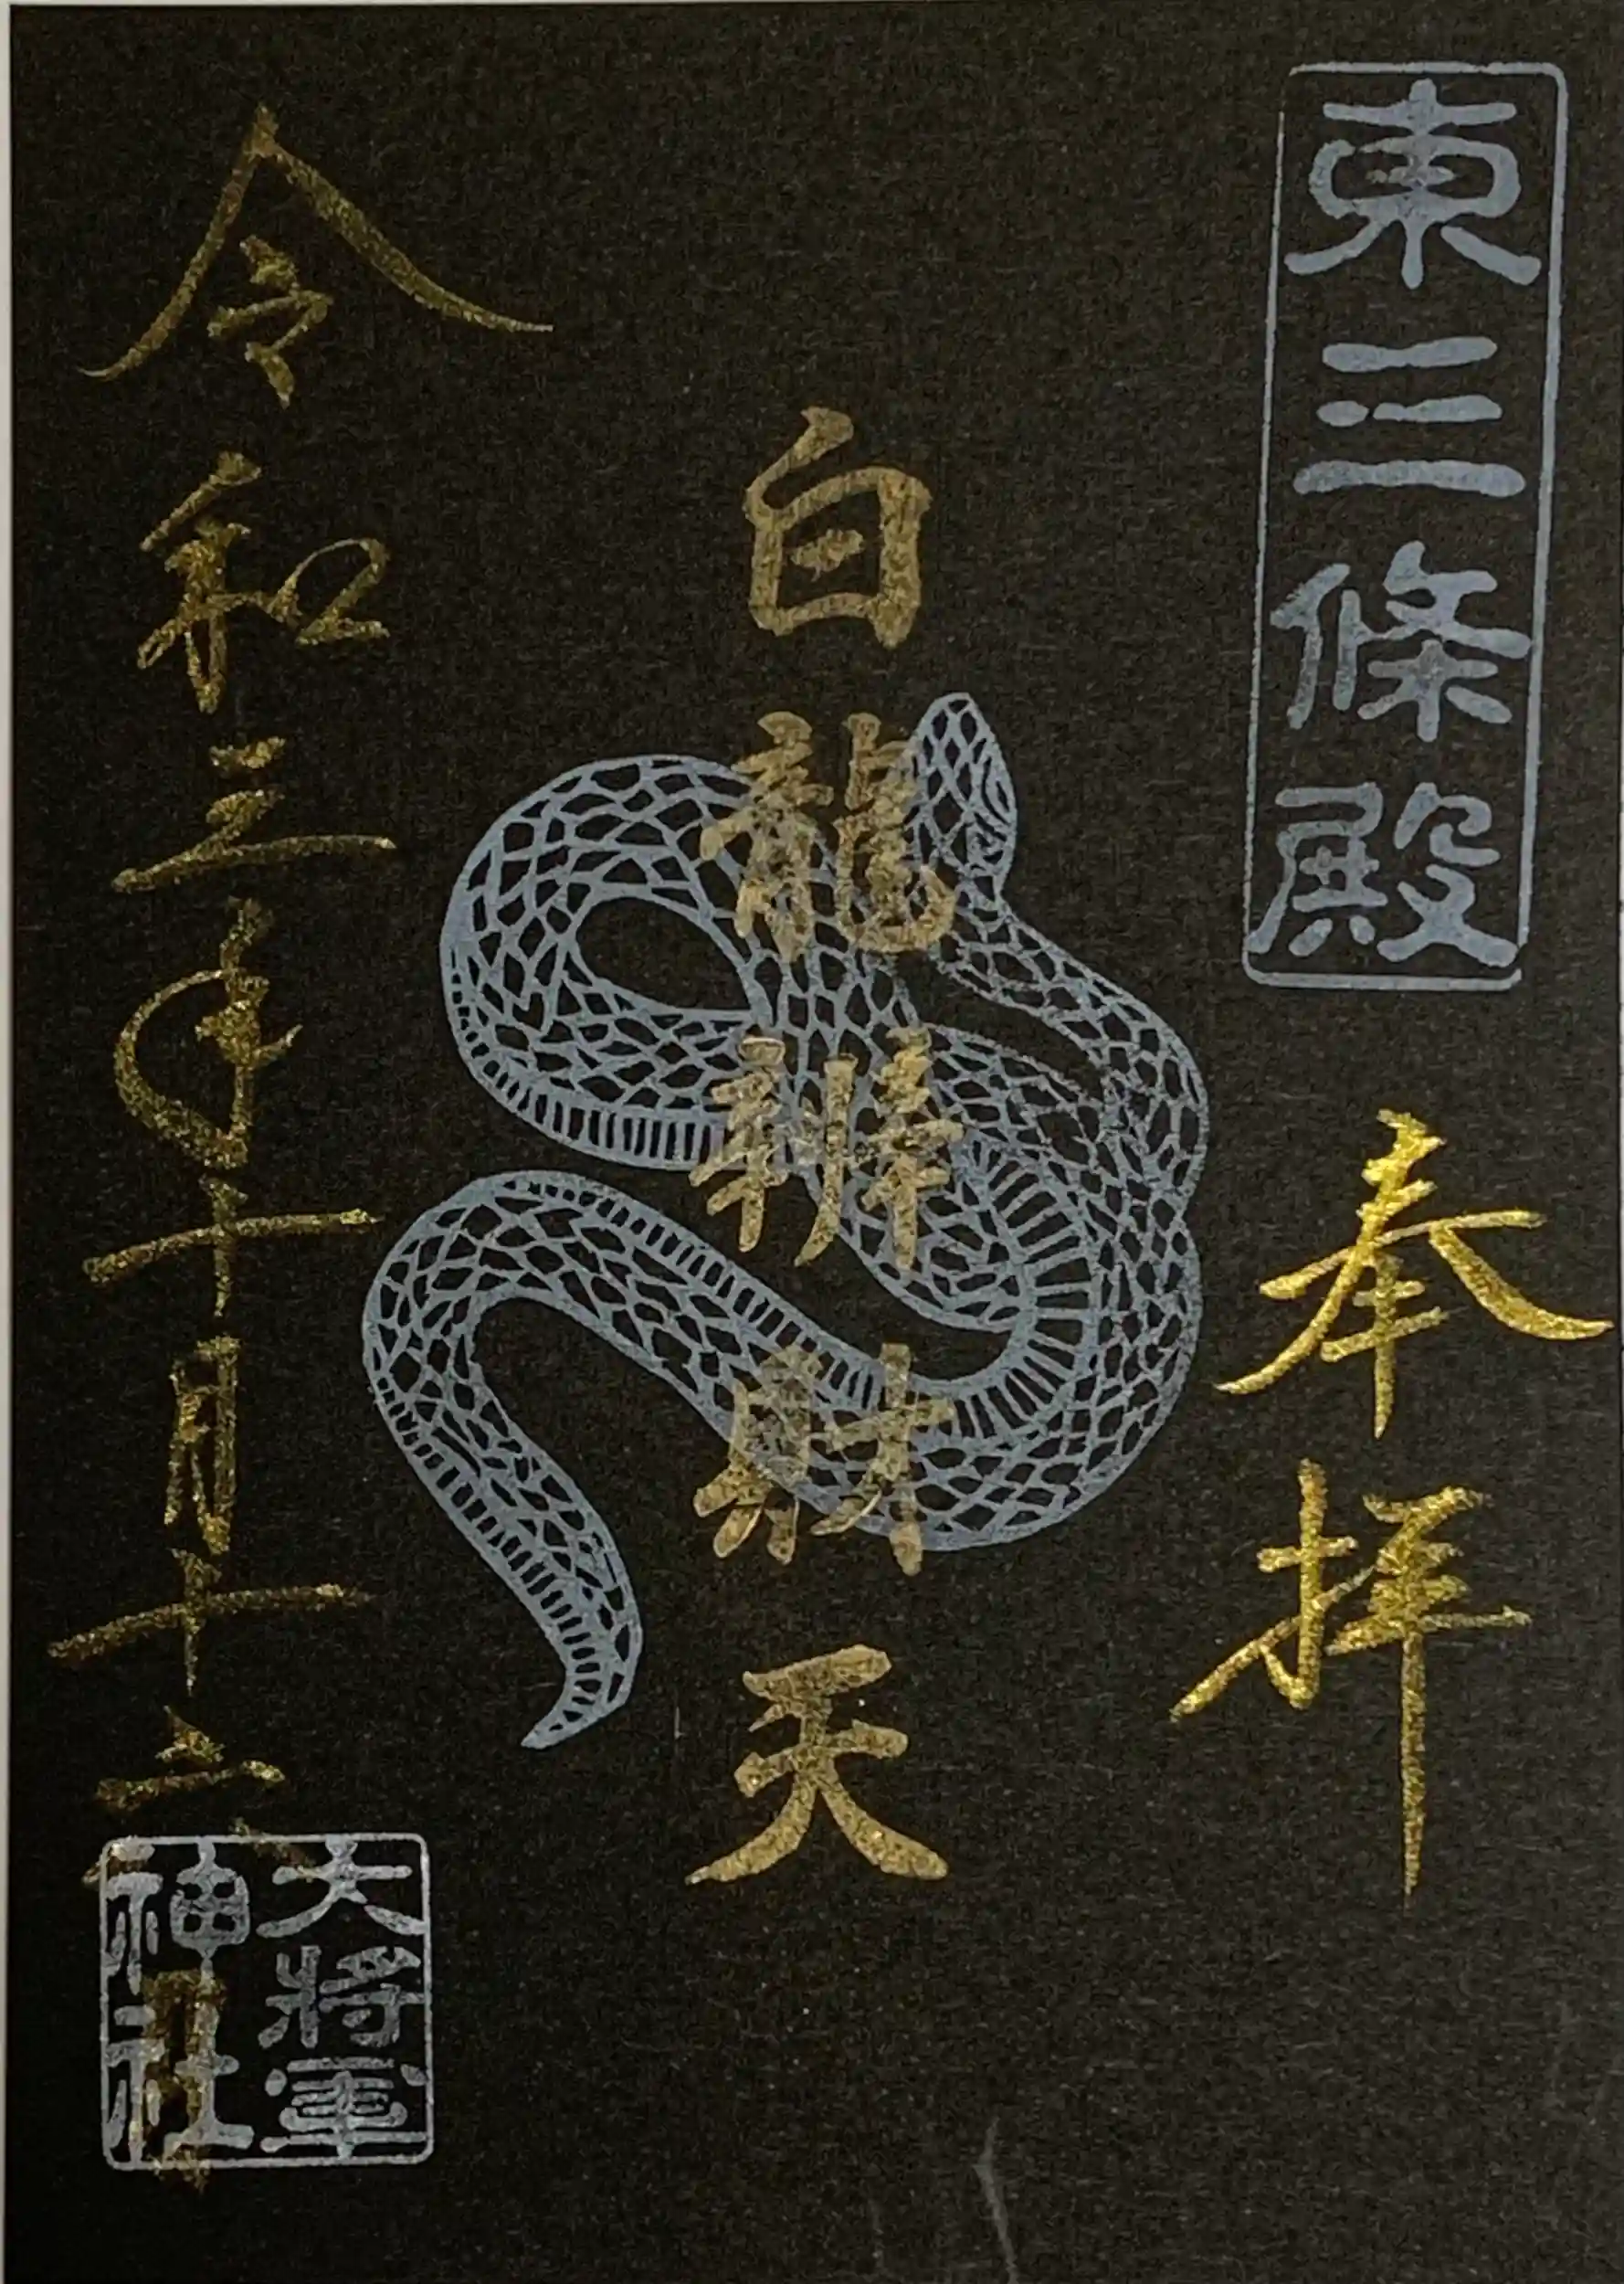 東三條殿
奉拝
白龍辨財天
令和三年十月十六日
大將軍
神社